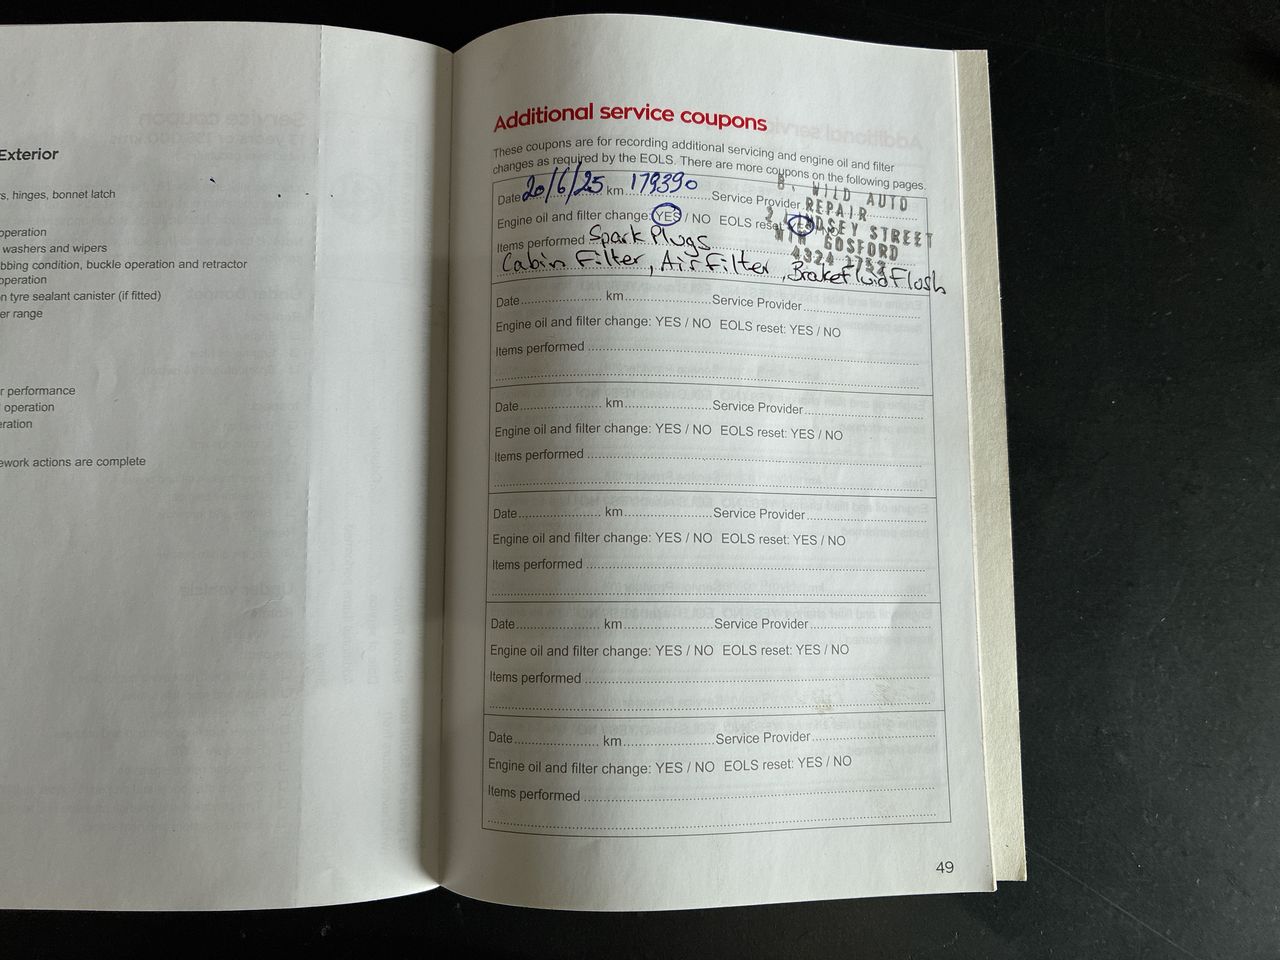 Exterior
s, hinges, bonnet latch
operation
washers and wipers
bbing condition, buckle operation and retractor
operation
n tyre sealant canister (if fitted)
er range
r performance
operation
eration
ework actions are complete
Additional service coupons
These coupons are for recording additional servicing and engine oil and filter
changes as required by the EOLS. There are more coupons on the following pages.
Date 20/6/25 km 179390 Service Provider
B. WILD AUTO
REPAIR
2 LINDSEY STREET
NTH GOSFORD
4324 1752
Engine oil and filter change: YES / NO EOLS reset: YES / NO
Items performed Spark Plugs
Cabin Filter, Air Filter, Brake Fluid Flush
Date km Service Provider
Engine oil and filter change: YES / NO EOLS reset: YES / NO
Items performed
Date km Service Provider
Engine oil and filter change: YES / NO EOLS reset: YES / NO
Items performed
Date km Service Provider
Engine oil and filter change: YES / NO EOLS reset: YES / NO
Items performed
Date km Service Provider
Engine oil and filter change: YES / NO EOLS reset: YES / NO
Items performed
Date km Service Provider
Engine oil and filter change: YES / NO EOLS reset: YES / NO
Items performed
49